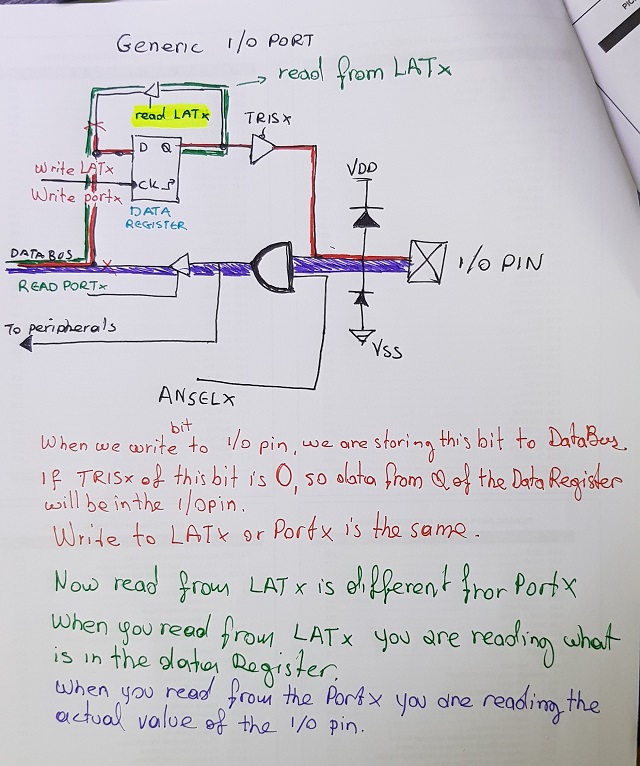 PIC
Generic I/O PORT
read from LATx
read LATx
TRISx
D Q
Write LATx
Write portx
CK
VDD
DATA
REGISTER
DATABUS
I/O PIN
READ PORTx
To peripherals
VSS
ANSELX
bit
When we write to I/O pin, we are storing this bit to DataBus
If TRISx of this bit is 0, so data from Q of the Data Register
will be in the I/O pin.
Write to LATx or Portx is the same.
Now read from LATx is different fror Portx
When you read from LATx you are reading what
is in the data Register.
When you read from the Portx you are reading the
actual value of the I/O pin.